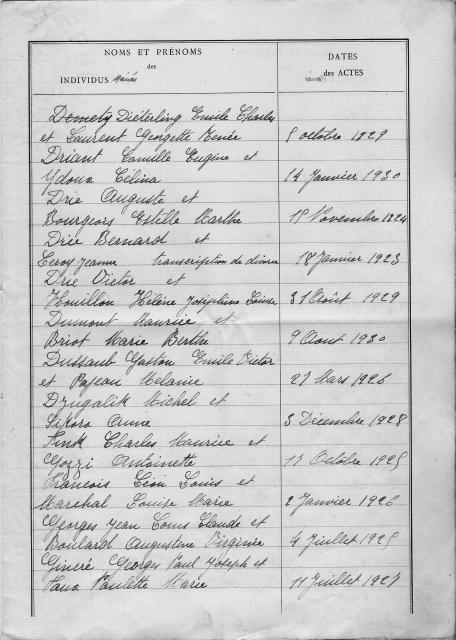 NOMS ET PRÉNOMS
des
INDIVIDUS Mariés
DATES
des ACTES
Demety Dieterling Emile Charles
et Laurent Georgette Renée
5 octobre 1929
Driant Camille Eugène et
Ydoux Célina
14 Janvier 1930
Drie Auguste et
Bourgeois Estille Marthe
15 Novembre 1924
Drie Bernard et
Leroy Jeanne transcription de divorce
18 Janvier 1923
Drie Victor et
Houillon Hélène Joséphine Louise
31 Août 1929
Dumont Maurice et
Briot Marie Berthe
9 Aout 1930
Dussaub Gaston Emile Victor
et Pajeau Mélanie
27 Mars 1926
Dzugalik Michel et
Sikora Anne
3 Décembre 1928
Finck Charles Maurice et
Gozzi Antoinette
17 Octobre 1925
François Léon Louis et
Maréchal Louise Marie
2 Janvier 1926
Georges Jean Louis Claude et
Boulard Augustine Virginie
4 Juillet 1925
Georges Paul Joseph et
Paulette Marie
11 Juillet 1927